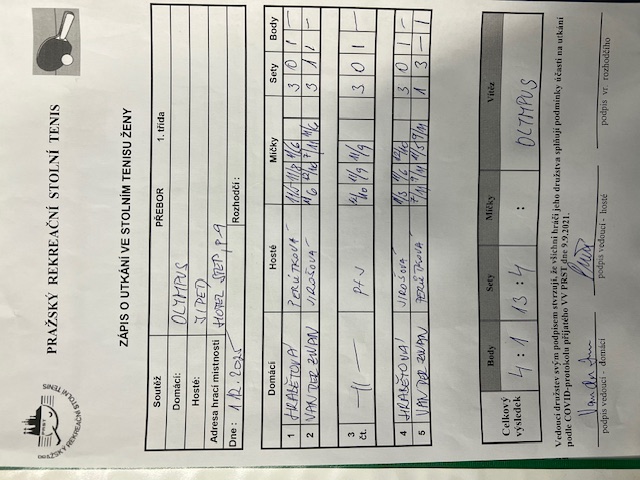 PRAŽSKÝ REKREAČNÍ STOLNÍ TENIS
PRST
PRAŽSKÝ REKREAČNÍ STOLNÍ TENIS
ZÁPIS O UTKÁNÍ VE STOLNÍM TENISU ŽENY
Soutěž PŘEBOR 1. třída
Domácí: OLYMPUS
Hosté: JIPED
Adresa hrací místnosti HOTEL STEP, P-9
Dne: 1.12.2025 Rozhodčí:
Domácí Hosté Míčky Sety Body
1 HRABĚTOVÁ PERLÍTKOVÁ 11/5 11/8 11/6 3 0 1 –
2 VAN DER ZWAN JIROŠOVÁ 11/6 12/10 7/11 11/6 3 1 1 –
3 čt. –||– P+J 12/10 11/9 11/9 3 0 1 –
4 HRABĚTOVÁ JIROŠOVÁ 11/3 11/6 12/10 3 0 1 –
5 VAN DER ZWAN PERLÍTKOVÁ 7/11 7/11 11/5 9/11 1 3 – 1
Celkový výsledek Body Sety Míčky Vítěz
4 : 1 13 : 4 : OLYMPUS
Vedoucí družstev svým podpisem stvrzují, že všichni hráči jeho družstva splňují podmínky účasti na utkání
podle COVID-protokolu přijatého VV PRST dne 9.9.2021.
podpis vedoucí - domácí podpis vedoucí - hosté podpis vr. rozhodčího